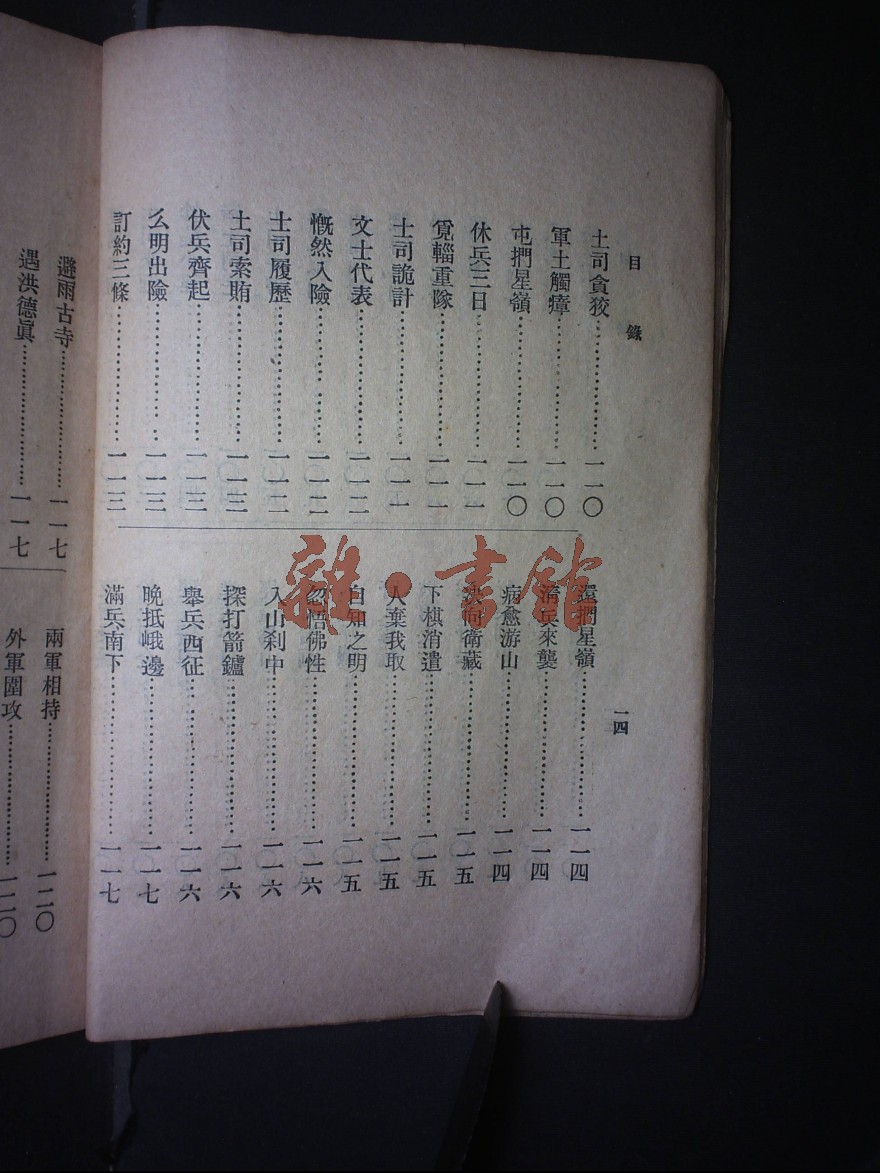 目錄
一四
土司貪狡…………一一〇
軍士觸瘴…………一一〇
屯捫星嶺…………一一〇
休兵三日…………一一一
覓輜重隊…………一一一
土司詭計…………一一一
文士代表…………一一二
慨然入險…………一一二
土司履歷…………一一二
土司索賄…………一一三
伏兵齊起…………一一三
么明出險…………一一三
訂約三條…………一一三
還捫星嶺…………一一四
清兵來襲…………一一四
病愈游山…………一一四
向衛藏…………一一五
下棋消遣…………一一五
人棄我取…………一一五
自知之明…………一一五
忽悟佛性…………一一六
入山刹中…………一一六
探打箭鑪…………一一六
舉兵西征…………一一六
晚抵峨邊…………一一七
滿兵南下…………一一七
避雨古寺…………一一七
遇洪德眞…………一一七
兩軍相持…………一二〇
外軍圍攻…………一二〇
雜·書館